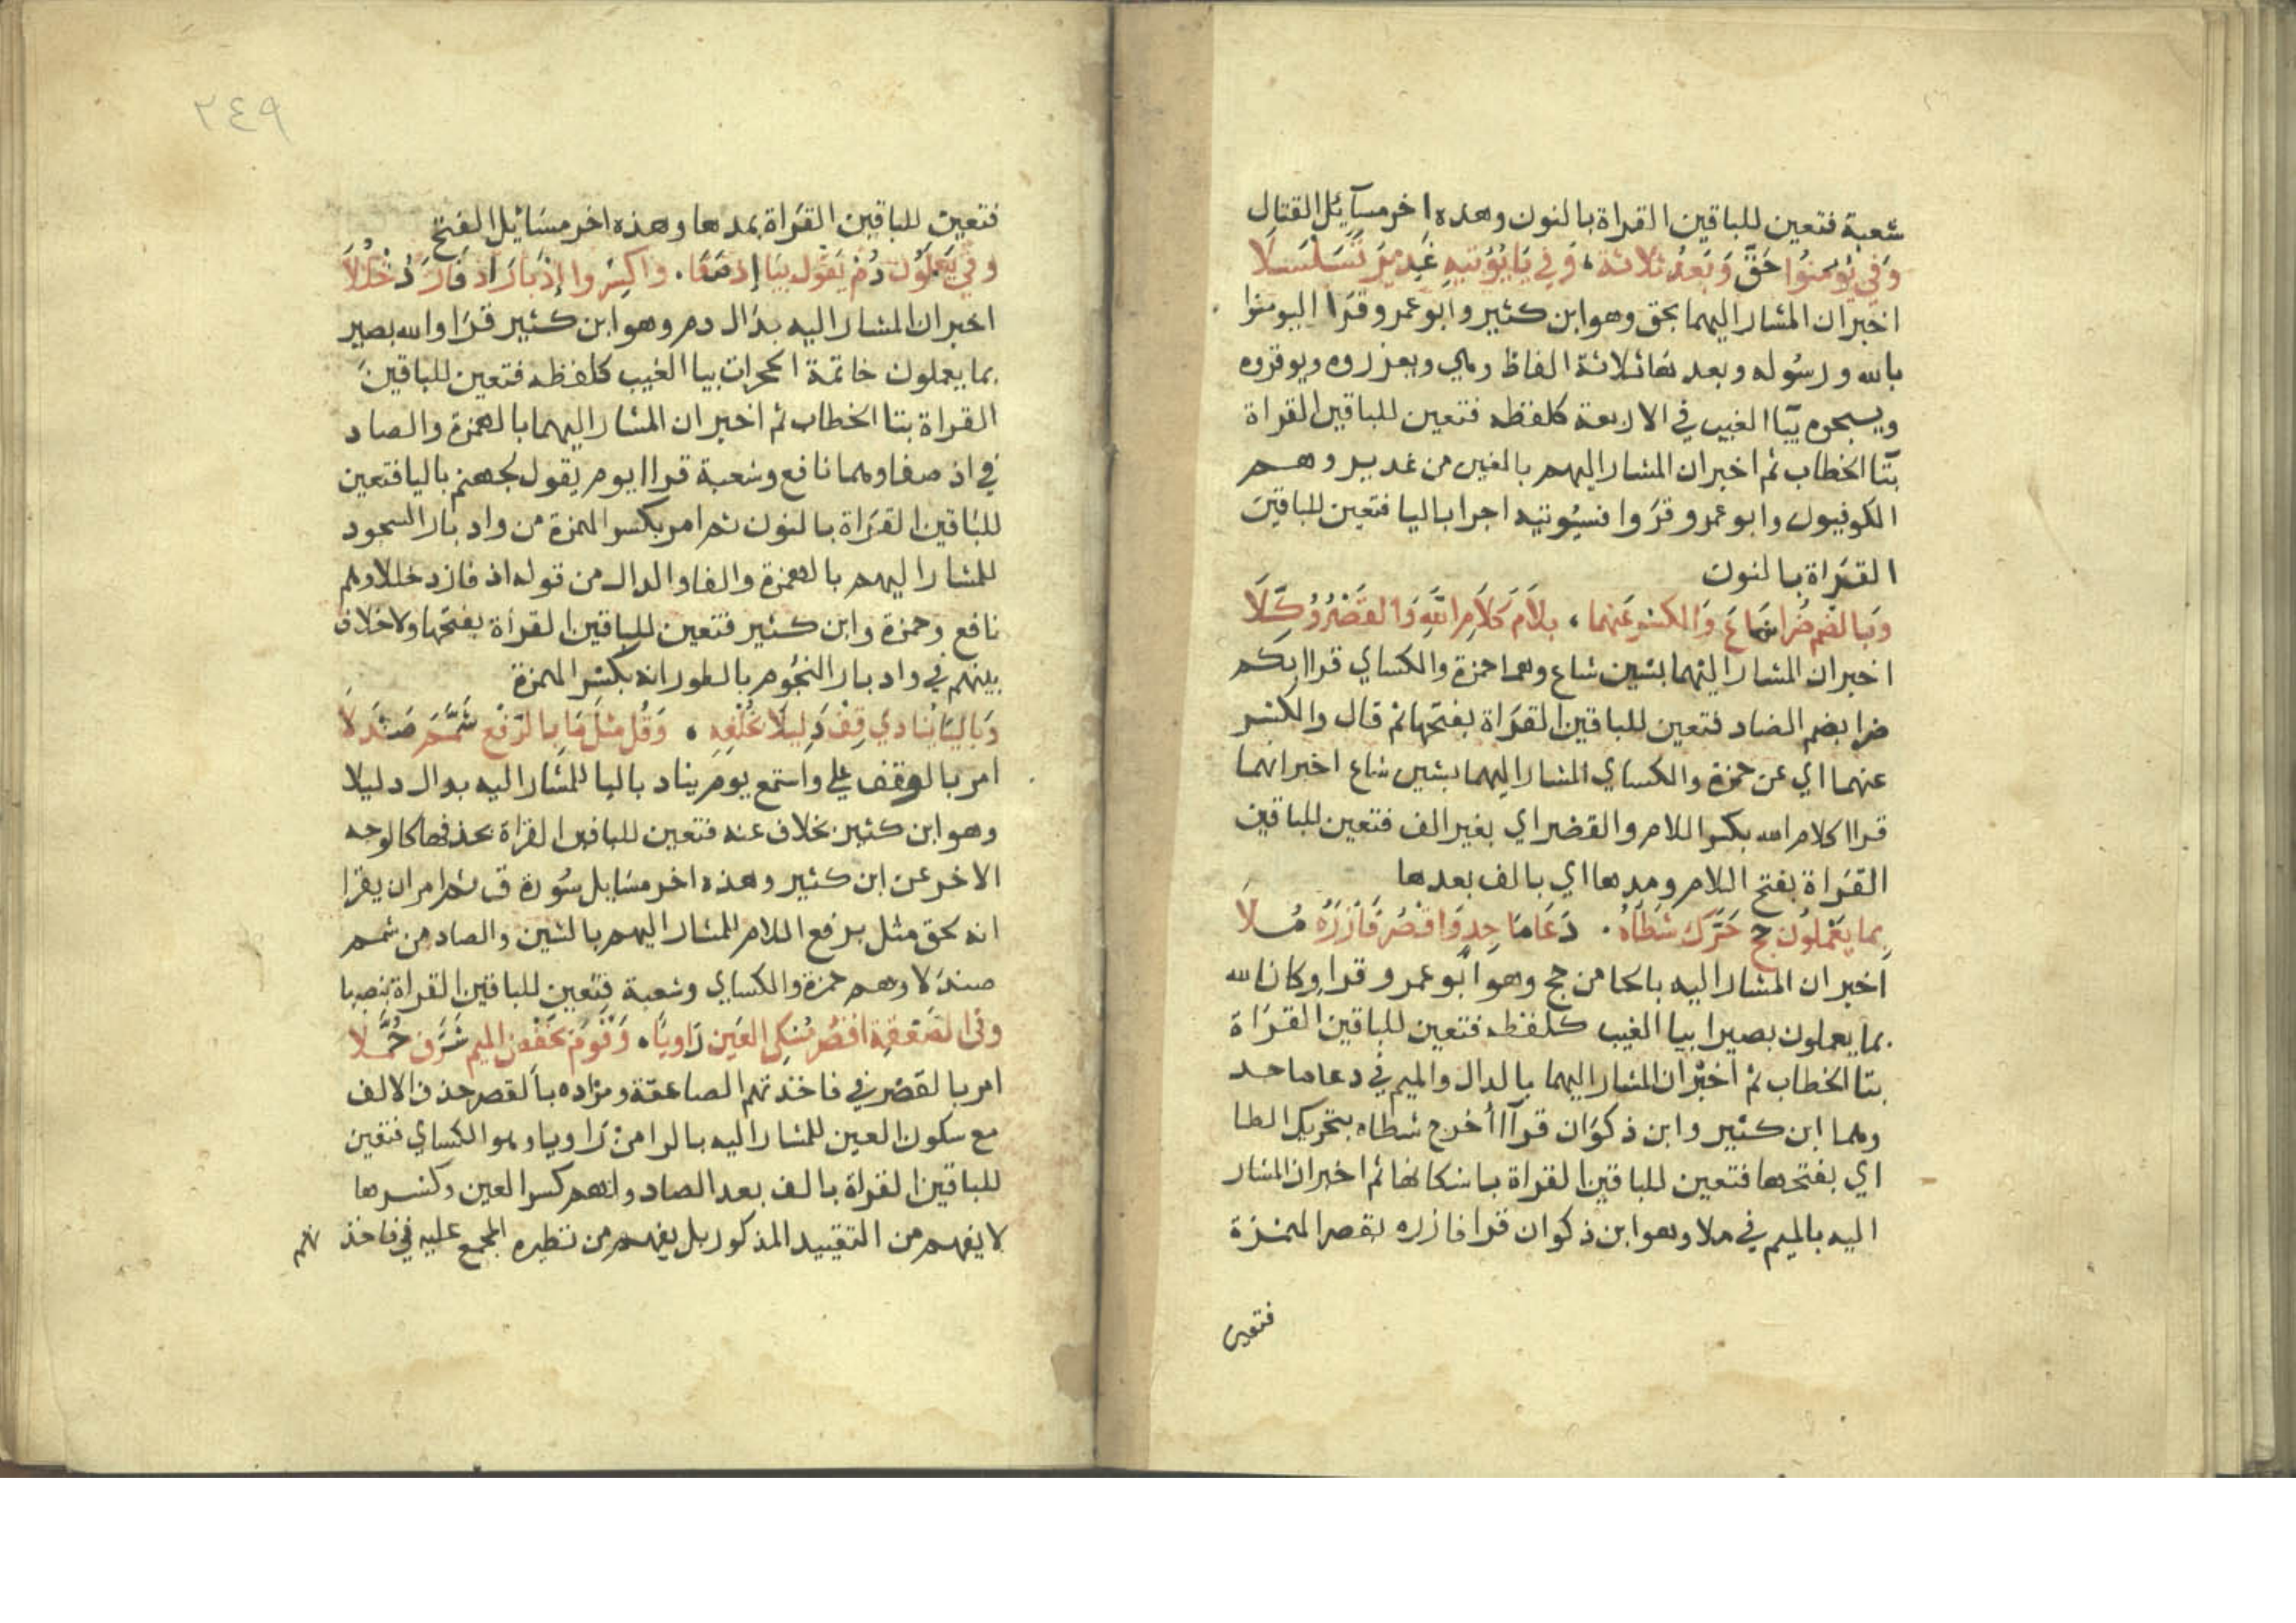 شعبة فتعين للباقين القراة بالنون وهذه اخر مسآيل القتال
وَفي يُؤمِنُوا حَقٌّ وَبَعدُ ثلاثة، وَفي يَا يُؤتيهِ غَدِيرٌ تَسَلْسَلَا
اخبر ان المشار اليهما بحق وهو ابن كثير وابو عمرو قرا اليومنوا
بالله ورسوله وبعد هاثلاثة الفاظ وهي ويعزروه ويوقروه
ويسبحوه بيآ الغيب في الاربعة كلفظه فتعين للباقين القراة
بتآ الخطاب ثم اخبر ان المشار اليهم بالغين من غدير وهم
الكوفيون وابو عمرو قروا فسيوتيه اجرا باليا فتعين للباقين
القراة بالنون
وَبالضَّمِ ضُرا شَاعَ وَالكسْرُ عَنهما، بلَامِ كَلَامِ اللَّهِ وَالقَصْرُ وُكِّلَا
اخبر ان المشار اليهما بشين شاع وهما حمزة والكساي قرا ابكم
ضرا بضم الضاد فتعين للباقين القراة بفتحها ثم قال والكسر
عنهما اي عن حمزة والكساي المشار اليهما بشين شاع اخبر انهما
قرا اكلام الله بكسر اللام والقصر اي بغير الف فتعين للباقين
القراة بفتح اللام ومدها اي بالف بعدها
بِما يَعْمَلُون حج حَرَّكَ شَطْأَهُ . دَعَا مَاجِدٍ وَاقْصُر فَآزَرَهُ مُلَا
اخبر ان المشار اليه بالحا من حج وهو ابو عمرو قرا وكان الله
بما يعملون بصيرا بيا الغيب كلفظه فتعين للباقين القراة
بتا الخطاب ثم اخبر ان المشار اليهما بالدال والميم في دعا ماجد
وهما ابن كثير وابن ذكوان قرآ أخرج شطاه بتحريك الطا
اي بفتحها فتعين للباقين القراة باسكانها ثم اخبر ان المشار
اليه بالميم في ملا وهو ابن ذكوان قرا فازره بقصر الهمزة
فتعين
٢٤٩
فتعين للباقين القراة بمدها وهذه اخر مسائيل الفتح
وفي يَعْمَلُون دُمْ يَقُولُ بيَا إِذ صَفَا . وَاكسِرُوا إِدْبَارَ إذ فَازَ دُخْلُلَا
اخبر ان المشار اليه بدال دم وهو ابن كثير قرا والله بصير
بما يعملون خاتمة الحجرات بيا الغيب كلفظه فتعين للباقين
القراة بتا الخطاب ثم اخبر ان المشار اليهما بالهمزة والصاد
في اذ صفا وهما نافع وشعبة قرا ايوم يقول لجهنم باليا فتعين
للباقين القراة بالنون ثم امر بكسر الهمزة من وادبار السجود
للمشار اليهم بالهمزة والفا والدال من قوله اذ فاز دخللا وهم
نافع وحمزة وابن كثير فتعين للباقين القراة بفتحها ولا خلاف
بينهم في وادبار النجوم بالطور انه بكسر الهمزة
وَبالْيَا يُنَادي قِفْ دَلِيلَا بخُلْفِهِ ، وَقُل مِثْلُ مَا بالرَّفْع شَمَّمَ صَنْدَلَا
امر بالوقف علي واستمع يوم يناد باليا للمشار اليه بدال دليلا
وهو ابن كثير بخلاف عنه فتعين للباقين القراة بحذفها كالوجه
الاخر عن ابن كثير وهذه اخر مسايل سورة ق ثم امر ان يقرا
انه لحق مثل برفع اللام للمشار اليهم بالشين والصاد من شمم
صندلا وهم حمزة والكساي وشعبة فتعين للباقين القراة بنصبها
وفى الصَّعْقَةِ اقصُر مُسْكِنَ العَين رَاوِيًا، وَقَوْمَ بخَفْضِ الميم شَرَّفَ حُمَّلَا
امر بالقصر في فاخذتهم الصاعقة ومراده بالقصر حذف الالف
مع سكون العين للمشار اليه بالرا من راويا وهو الكساي فتعين
للباقين القراة بالف بعد الصاد ولهم كسر العين وكسرها
لا يفهم من التقييد المذكور بل يفهم من نظيره المجمع عليه في فاخذ تهم